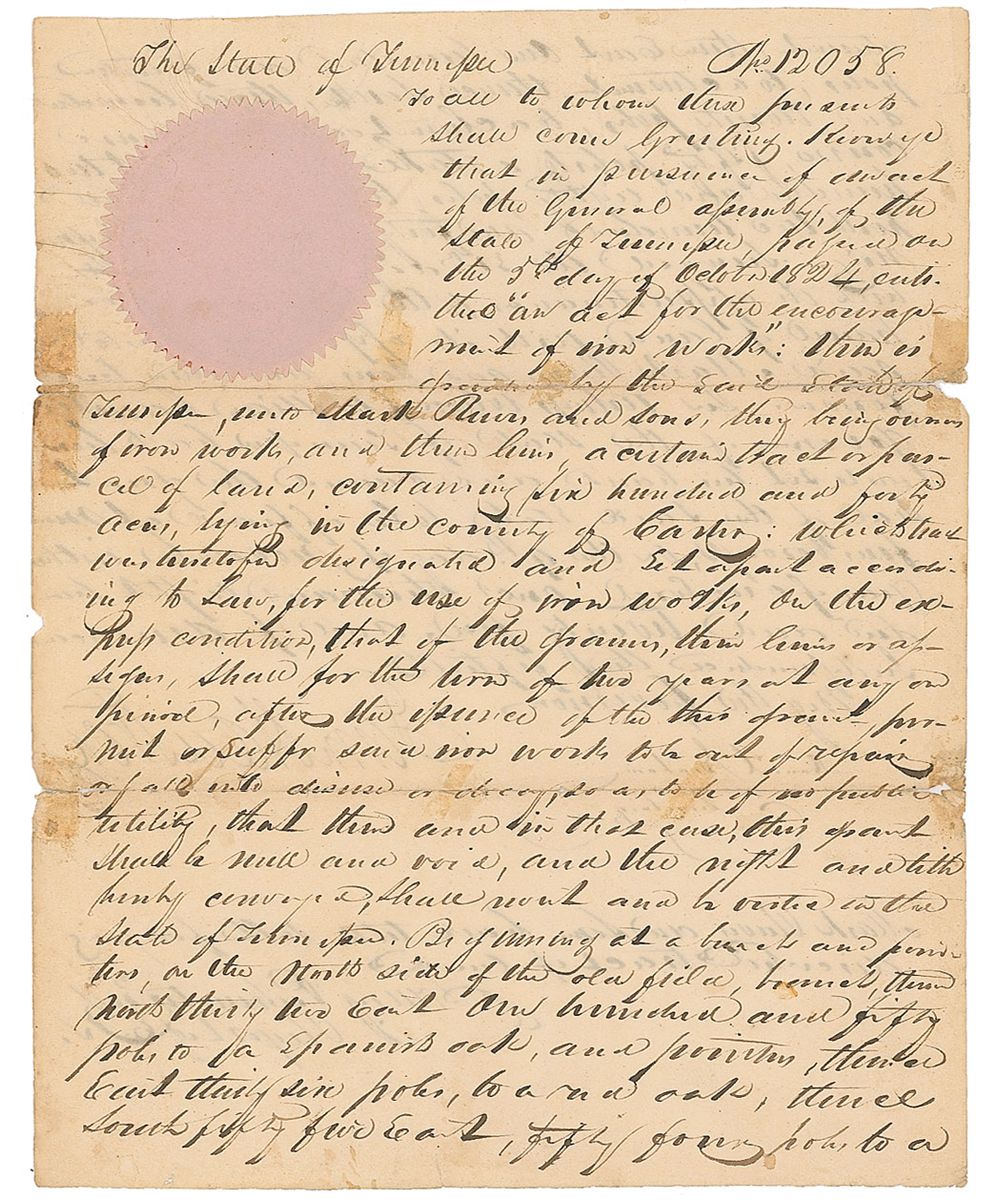 The State of Tennessee No 12058.
To all to whom these presents
shall come Greeting. Know ye
that in pursuance of an act
of the General assembly, of the
State of Tennessee, passed on
the 5th day of Octobr 1824, enti-
tled "an act for the encourage-
ment of iron works": there is
granted by the said State of
Tennessee, unto Mark and Sons, they being owners
of iron works, and their heirs, a certain tract or par-
cel of land, containing six hundred and forty
acres, lying in the county of Carter: which tract
was heretofore designated and Set apart accordi-
ing to Law, for the use of iron works, On the ex-
press condition, that if the grantees, their heirs or as-
signs, shall for the term of two years at any one
period, after the issuance of the this grant, per-
mit or suffr said iron works to be out of repair
or fall into disuse or decay, so as to be of no public
utility, that then and in that case, this grant
shall be null and void, and the right and title
hereby conveyed, shall revert and be vested in the
State of Tennessee. Beginning at a bunch and poin-
ters, on the North side of the old field, branch, thence
North thirty two East One hundred and fifty
poles to a Spanish oak, and pointers, thence
East thirty six poles, to a red oak, thence
South fifty five East, fifty four poles to a